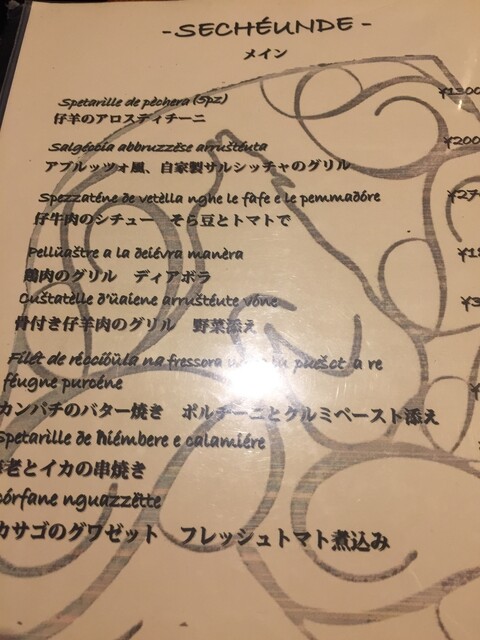 - SECHÉUNDE -
メイン
Spetarille de pèchera (5pz)
仔羊のアロスティチーニ
Salgéccia abbruzzëse arruštéuta
アブルッツォ風、自家製サルシッチャのグリル
Spezzaténe de vetèlla nghe le fafe e le pemmadóre
仔牛肉のシチュー そら豆とトマトで
Pellüaštre a la deiévra manèra
鶏肉のグリル ディアボラ
Cuštatèlle d'üaiene arruštéute vóne
骨付き仔羊肉のグリル 野菜添え
Filét de réccïöüla na fressora
féugne puroéne
カンパチのバター焼き ポルチーニとクルミペースト添え
Spetarille de ñiémbere e calamiére
老とイカの串焼き
córfane nguazzëtte
カサゴのグワゼット フレッシュトマト煮込み